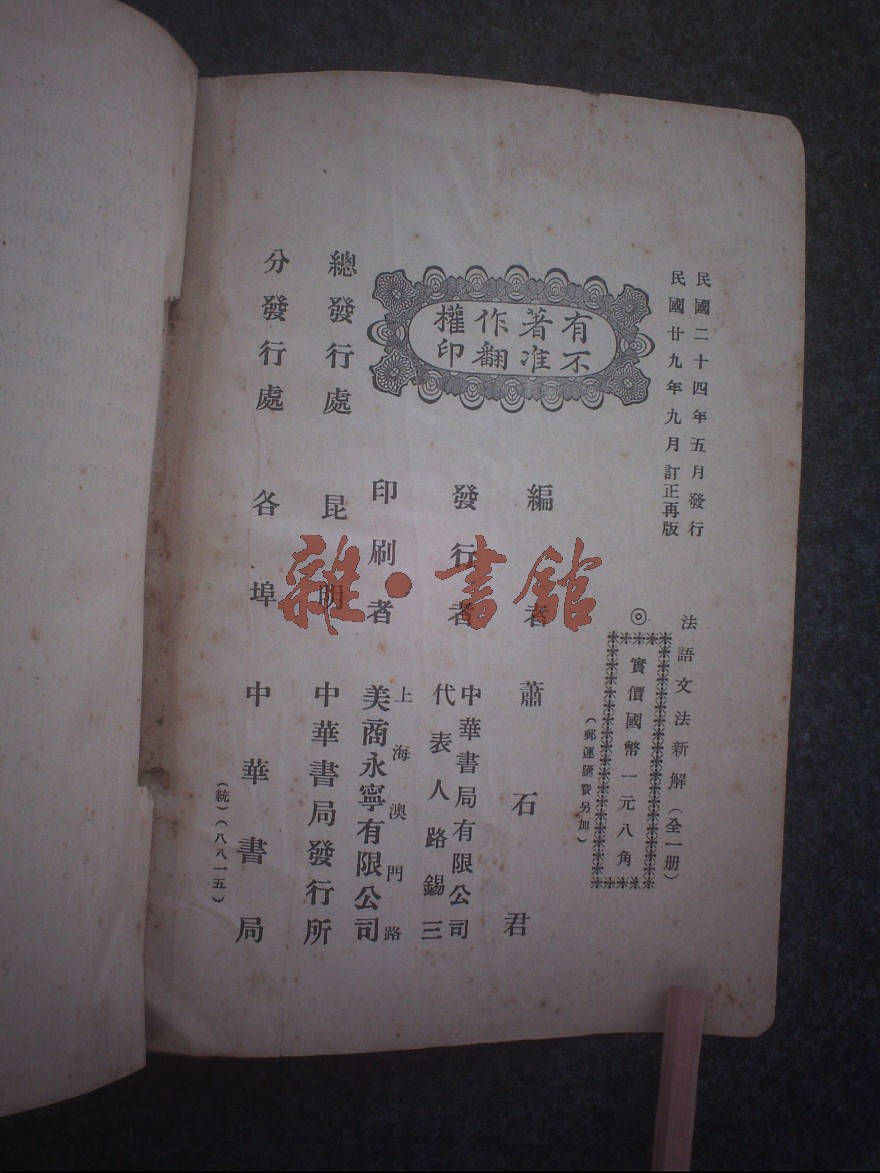 民國二十四年五月發行
民國廿九年九月訂正再版
法語文法新解（全一册）
◎實價國幣一元八角
（郵運匯費另加）
有著作權
不准翻印
編者 蕭石君
發行者 中華書局有限公司
代表人路錫三
印刷者 上海澳門路
美商永寧有限公司
總發行處 昆明 中華書局發行所
分發行處 各埠 中華書局
（統）（八八一五）
雜·書館